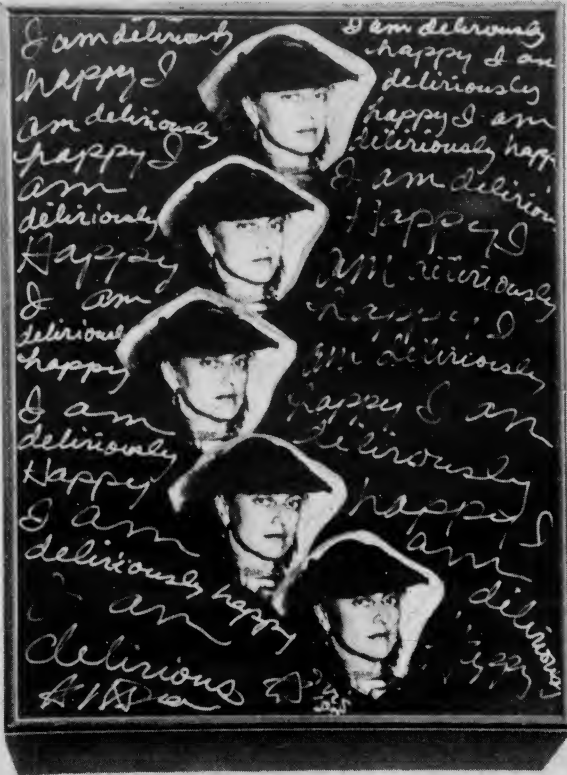 I am deliriously
happy I
am deliriously
happy I
am
deliriously
Happy
I am
deliriously
happy
I am
deliriously
Happy
I am
deliriously happy
am
delirious
I am deliriously
happy I am
deliriously
happy I am
deliriously happy
I am deliriou
Happy I
am deliriously
happy I
am deliriously
happy I am
delirously
happy I
am
deliriously